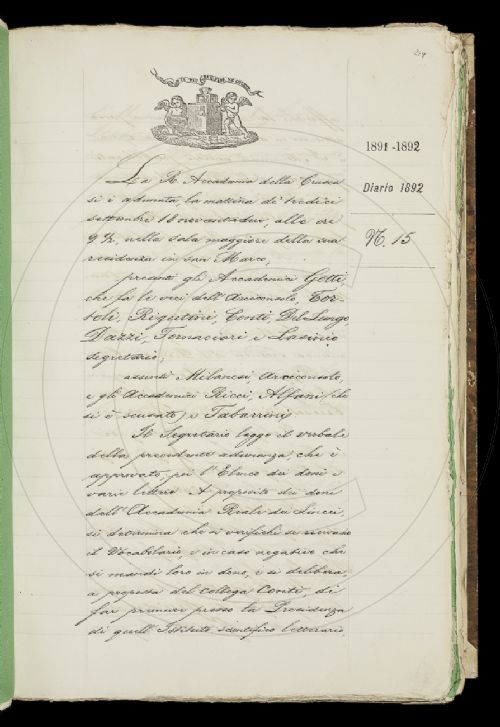 209
1891-1892
Diario 1892
N. 15
La R. Accademia della Crusca
si è adunata, la mattina de' tredici
settembre 18novantadue, alle ore
9 ½, nella sala maggiore della sua
residenza in san Marco,
presenti gli Accademici Gotti,
che fa le veci dell'Arciconsolo, Tor-
toli, Rigutini, Conti, Del-Lungo,
Dazzi, Tomaciari e Lasinio
segretario;
assenti Milanesi, Arciconsolo
e gli Accademici Ricci, Alfani (che
si è scusato) e Tabarrini,
Il Segretario legge il verbale
della precedente adunanza, che è
approvato, poi l'Elenco dei doni e
varie lettere. A proposito dei doni
dell'Accademia Reale dei Lincei,
si determina che si verifichi se ricevano
il Vocabolario, e in caso negativo che
si mandi loro in dono, e si delibera,
a proposta del Collega Conti, di
far premure presso la Presidenza
di quell'Istituto scientifico letterario,